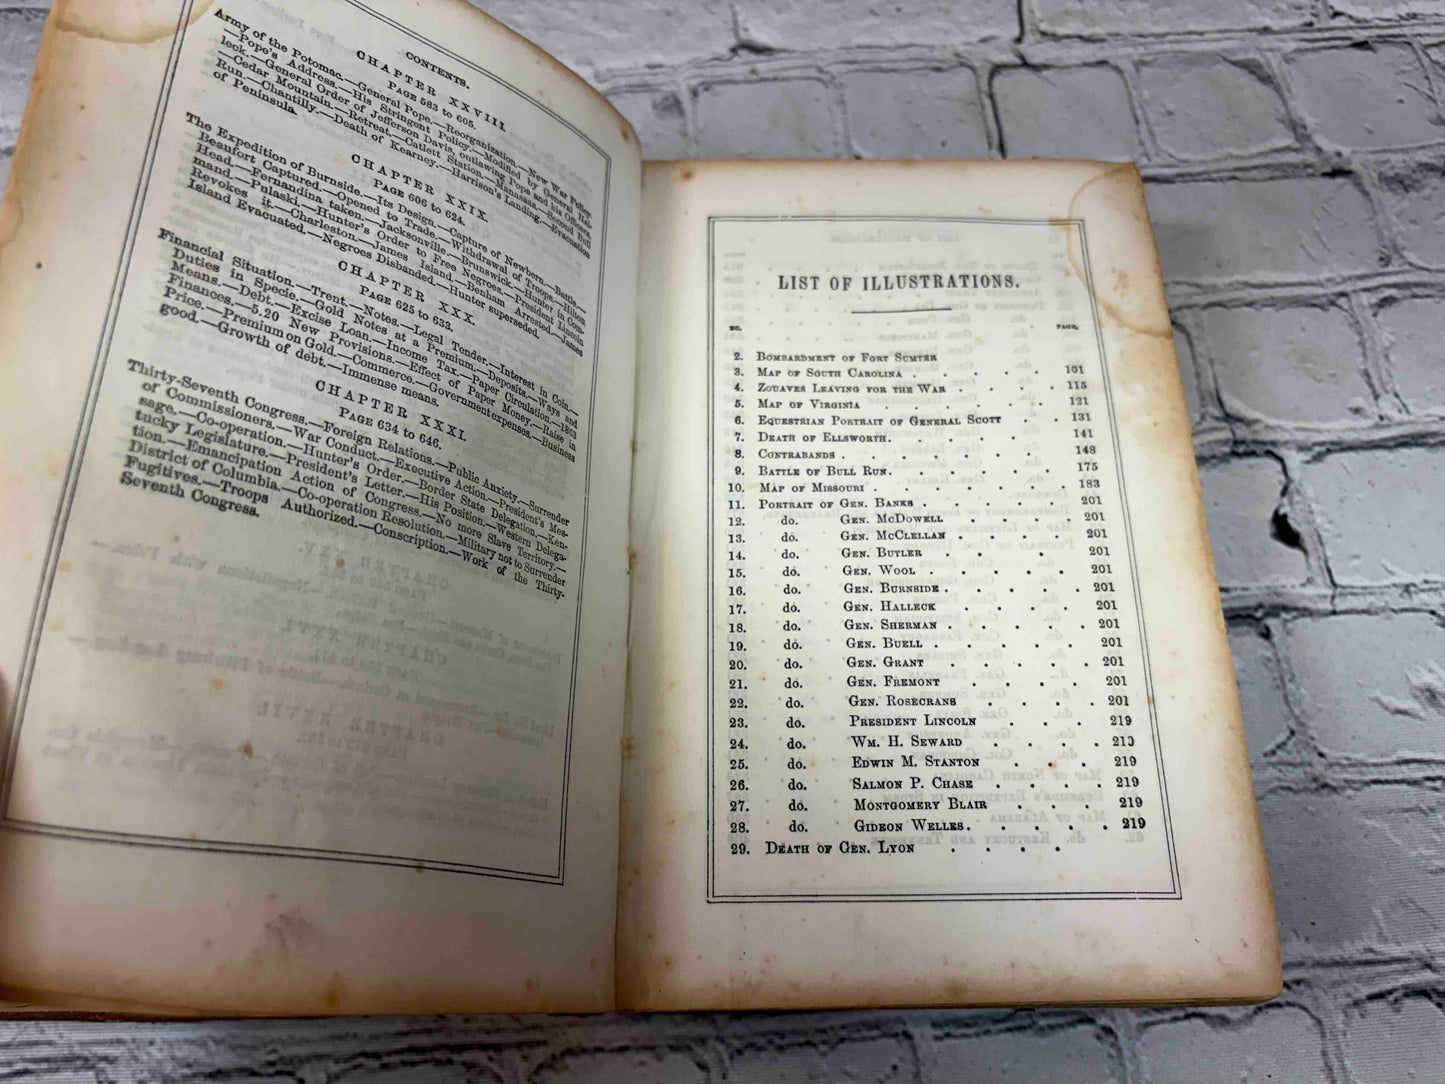 CONTENTS.
CHAPTER XXVIII.
PAGE 583 to 605.
Army of the Potomac.—General Pope.—Reorganization.—New War Policy.
—Pope's Address.—His Stringent Policy.—Modified by General Hal-
leck.—General Order of Jefferson Davis, outlawing Pope and his Officers.
—Cedar Mountain.—Retreat.—Catlett Station.—Manassas.—Second Bull
Run.—Chantilly.—Death of Kearney.—Harrison's Landing.—Evacuation
of Peninsula.
CHAPTER XXIX.
PAGE 606 to 624.
The Expedition of Burnside.—Its Design.—Capture of Newbern.—Battle.—
Beaufort Captured.—Opened to Trade.—Withdrawal of Troops.—Hilton
Head.—Fernandina taken.—Jacksonville.—Brunswick.—Hunter in Com-
mand.—Pulaski.—Hunter's Order to Free Negroes.—President Lincoln
Revokes it.—Charleston.—James Island.—Benham Arrested.—James
Island Evacuated.—Negroes Disbanded.—Hunter superseded.
CHAPTER XXX.
PAGE 625 to 633.
Financial Situation.—Trent.—Notes.—Legal Tender.—Interest in Coin.—
Duties in Specie.—Gold Notes at a Premium.—Deposits.—Ways and
Means.—Debt.—Excise Loan.—Income Tax.—Paper Circulation.—1863
Finances.—5.20 New Provisions.—Effect of Paper Money.—Raise in
Price.—Premium on Gold.—Commerce.—Government expenses.—Business
good.—Growth of debt.—Immense means.
CHAPTER XXXI.
PAGE 634 to 646.
Thirty-Seventh Congress.—Foreign Relations.—Public Anxiety.—Surrender
of Commissioners.—War Conduct.—Executive Action.—President's Mes-
sage.—Co-operation.—Hunter's Order.—Border State Delegation.—Ken-
tucky Legislature.—President's Letter.—His Position.—Western Delega-
tion.—Emancipation Action of Congress.—No more Slave Territory.—
District of Columbia.—Co-operation Resolution.—Military not to Surrender
Fugitives.—Troops Authorized.—Conscription.—Work of the Thirty-
Seventh Congress.
LIST OF ILLUSTRATIONS.
NO. PAGE.
2. BOMBARDMENT OF FORT SUMTER
3. MAP OF SOUTH CAROLINA . . . . . . 101
4. ZOUAVES LEAVING FOR THE WAR . . . . . 115
5. MAP OF VIRGINIA . . . . . . . 121
6. EQUESTRIAN PORTRAIT OF GENERAL SCOTT . . . 131
7. DEATH OF ELLSWORTH. . . . . . . 141
8. CONTRABANDS . . . . . . . . 148
9. BATTLE OF BULL RUN. . . . . . . 175
10. MAP OF MISSOURI . . . . . . . 183
11. PORTRAIT OF GEN. BANKS . . . . . . 201
12. do. GEN. MCDOWELL . . . . . 201
13. do. GEN. MCCLELLAN . . . . . 201
14. do. GEN. BUTLER . . . . . 201
15. do. GEN. WOOL . . . . . . 201
16. do. GEN. BURNSIDE . . . . . 201
17. do. GEN. HALLECK . . . . . 201
18. do. GEN. SHERMAN . . . . . 201
19. do. GEN. BUELL . . . . . . 201
20. do. GEN. GRANT . . . . . 201
21. do. GEN. FREMONT . . . . . 201
22. do. GEN. ROSECRANS . . . . . 201
23. do. PRESIDENT LINCOLN . . . . 219
24. do. WM. H. SEWARD . . . . . 219
25. do. EDWIN M. STANTON . . . . 219
26. do. SALMON P. CHASE . . . . . 219
27. do. MONTGOMERY BLAIR . . . . 219
28. do. GIDEON WELLES. . . . . . 219
29. DEATH OF GEN. LYON . . . .